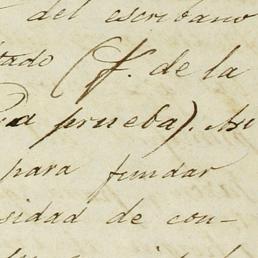 del escribano
tado (f. de la
prueba). Asi
para fundar
sidad de con-